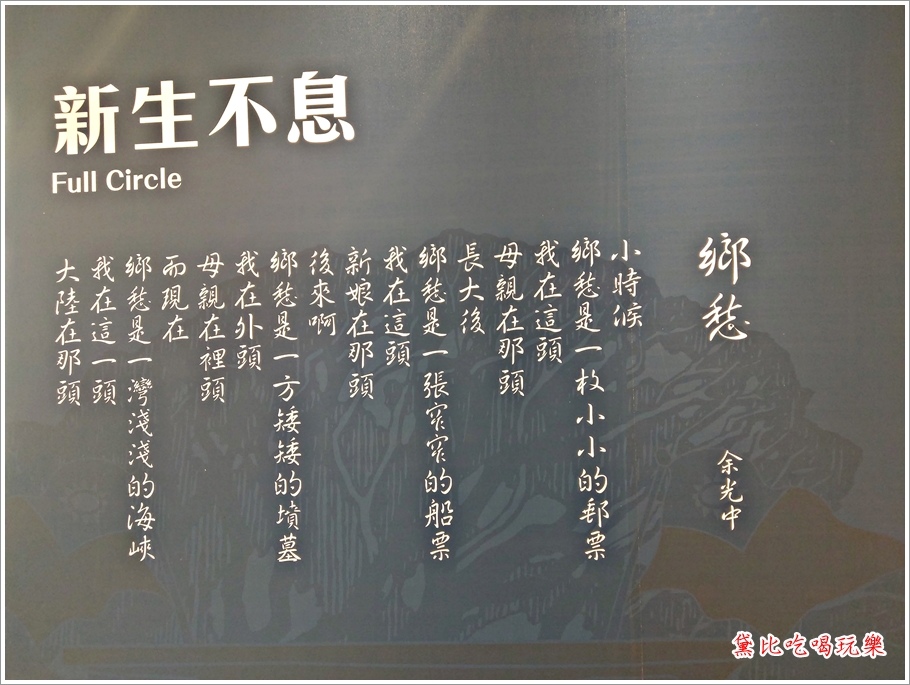 新生不息
Full Circle
鄉愁 余光中
小時候
鄉愁是一枚小小的郵票
我在這頭
母親在那頭
長大後
鄉愁是一張窄窄的船票
我在這頭
新娘在那頭
後來啊
鄉愁是一方矮矮的墳墓
我在外頭
母親在裡頭
而現在
鄉愁是一灣淺淺的海峽
我在這一頭
大陸在那頭
黛比吃喝玩樂